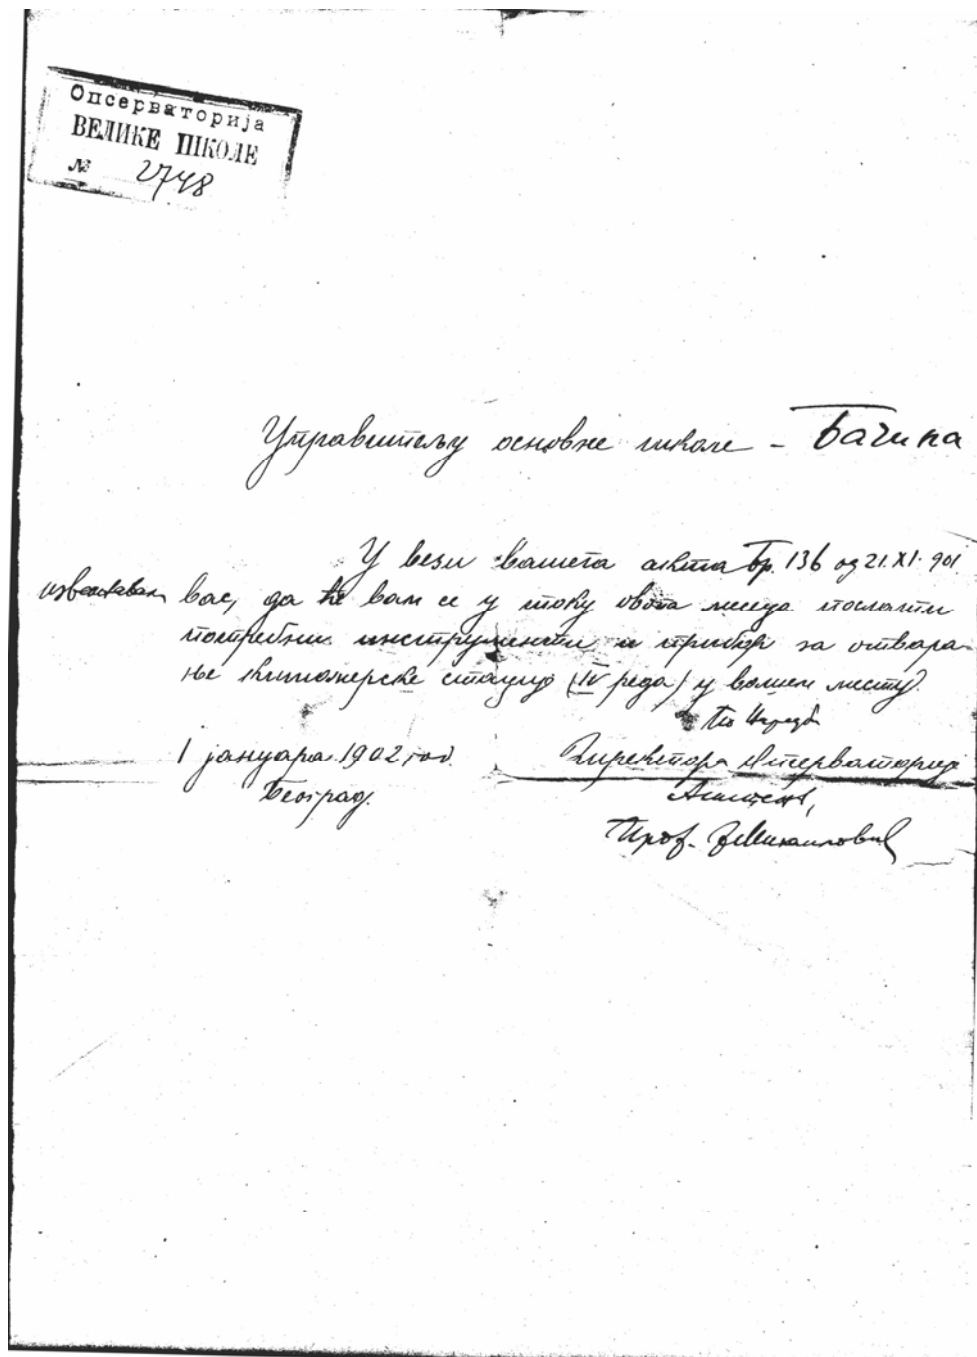 Опсерваторија
ВЕЛИКЕ ШКОЛЕ
№ 2748
Управитељу основне школе - Бачина
У вези вашега акта Бр. 136 од 21.XI.901
извештавам вас, да ће вам се у току овога месеца послати
потребни инструменти и прибор за отвара-
ње кишомерске станице (IV реда) у вашем месту.
По Наредби
1 јануара 1902 год.
Директора Опсерваторије
Београд.
Асистент,
Проф. Михаиловић